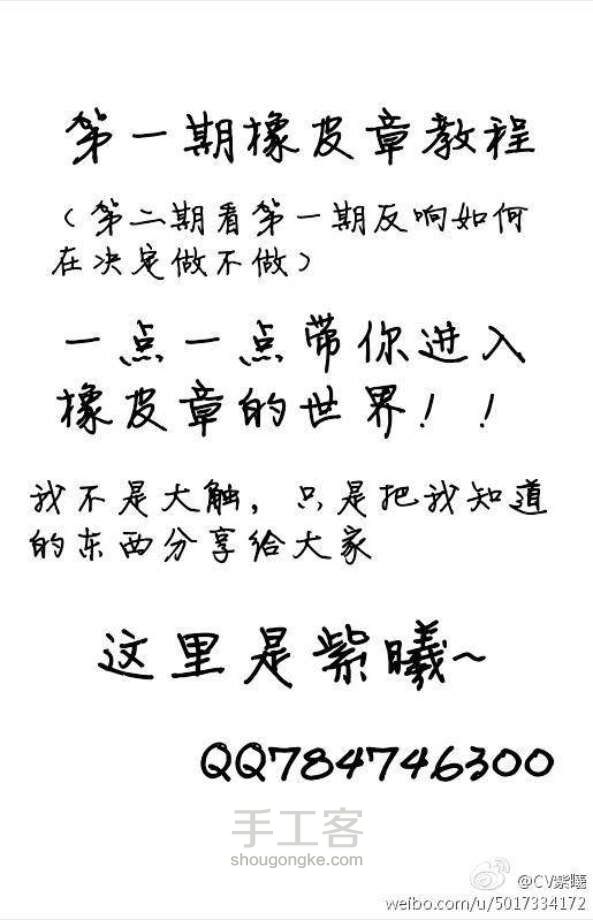 第一期橡皮章教程
（第二期看第一期反响如何
在决定做不做）
一点一点带你进入
橡皮章的世界！！
我不是大触，只是把我知道
的东西分享给大家
这里是紫曦~
QQ784746300
手工客
shougongke.com
@CV紫曦
weibo.com/u/5017334172